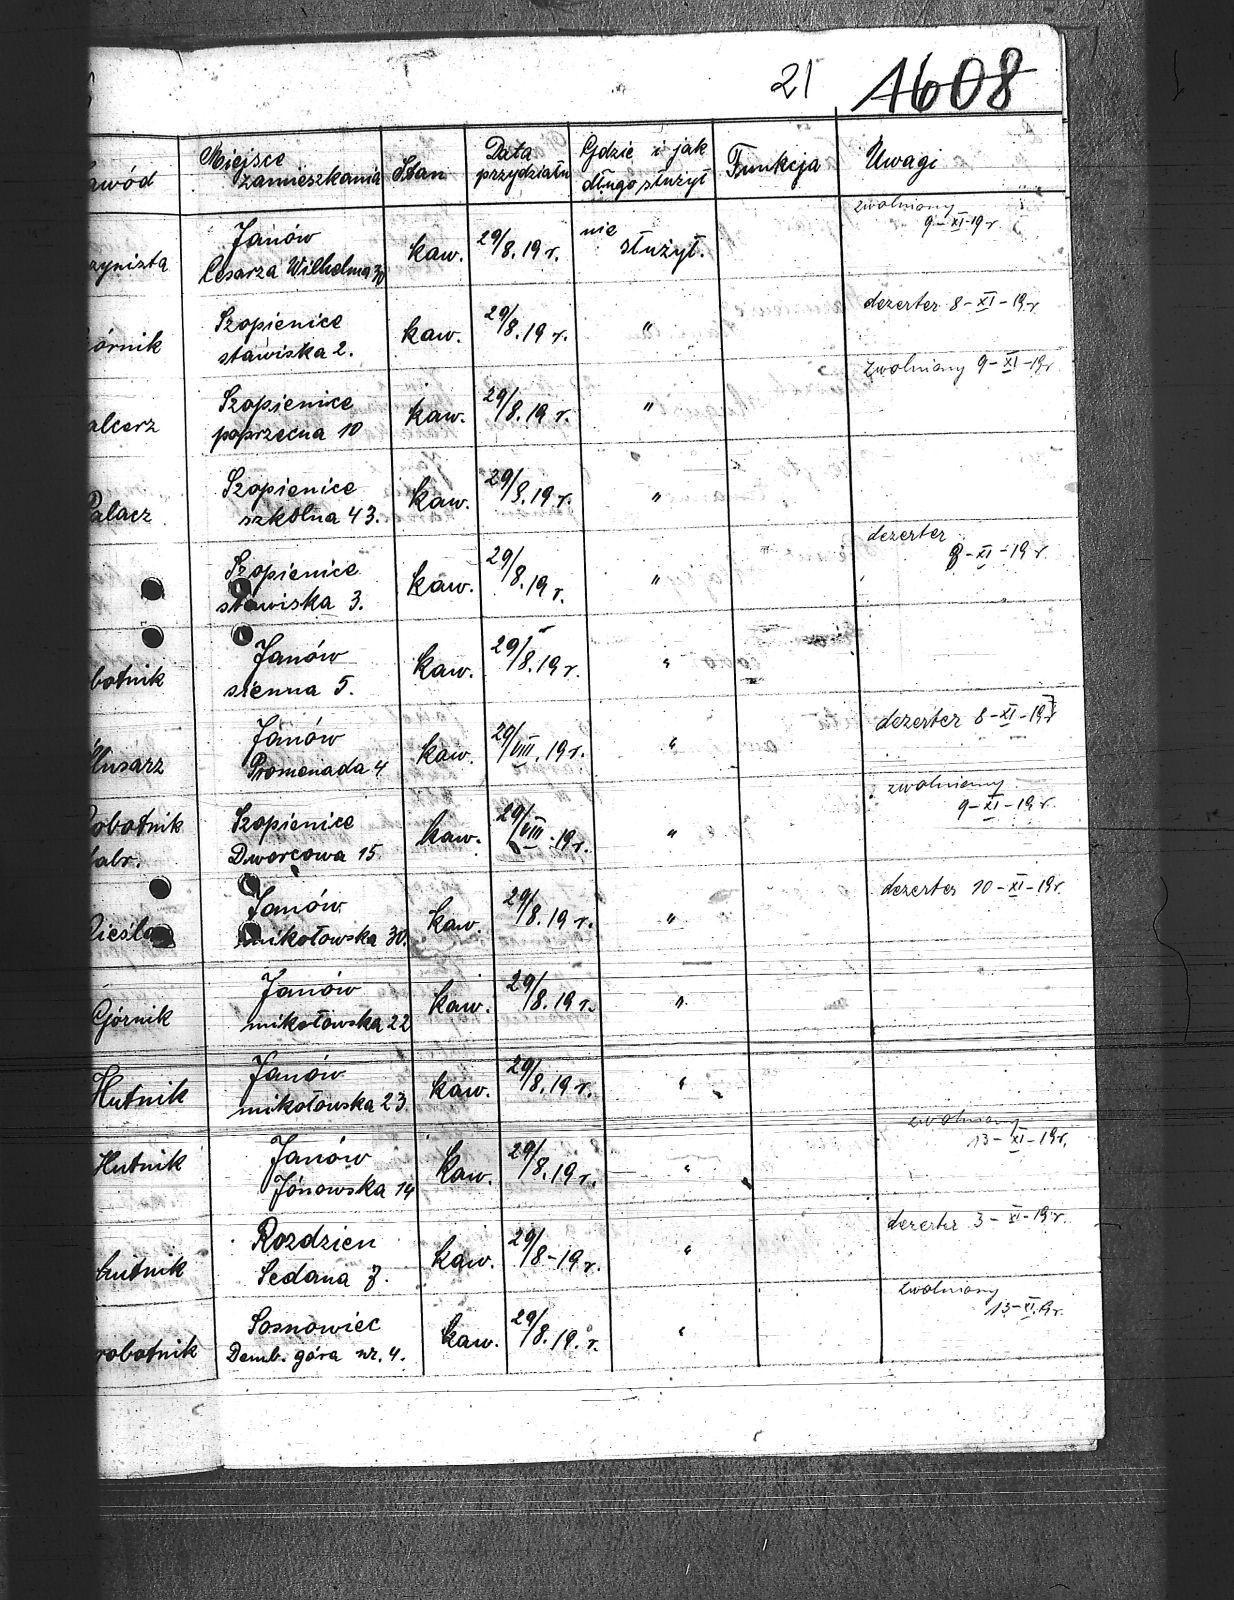 21 1608
awód Miejsce zamieszkania Stan Data przydziału Gdzie i jak długo służył Funkcja Uwagi
zwolniony
9-XI-19 r
Janów
Cesarza Wilhelma 30 kaw. 29/8.19 r. nie służył.
dezerter 8-XI-19 r.
órnik Szopienice
stawiska 2. kaw. 29/8.19 r. "
zwolniony 9-XI-19 r
alcerz Szopienice
poprzecna 10 kaw. 29/8.19 r. "
Palacz Szopienice
szkolna 43. kaw. 29/8.19 r. "
dezerter
8-XI-19 r.
Szopienice
stawiska 3. kaw. 29/8.19 r. "
botnik Janów
sienna 5. kaw. 29/8.19 r. "
dezerter 8-XI-19 r
lusarz Janów
Promenada 4 kaw. 29/VIII.19 r. "
zwolniony
9-XI-19 r.
obotnik
abr. Szopienice
Dworcowa 15 kaw. 29/VIII.19 r. "
dezerter 10-XI-19 r.
Janów
mikołowska 30. kaw. 29/8.19 r. "
Górnik Janów
mikołowska 22 kaw. 29/8.19 r. "
Hutnik Janów
mikołowska 23. kaw. 29/8.19 r. "
zwolniony
13-XI-19 r.
Hutnik Janów
Jónowska 14 kaw. 29/8.19 r. "
dezerter 3-XI-19 r.
hutnik Rozdzien
Sedana 7. kaw. 29/8-19 r. "
zwolniony
13-XI.19 r.
robotnik Sosnowiec
Demb. góra nr. 4. kaw. 29/8.19. r. "